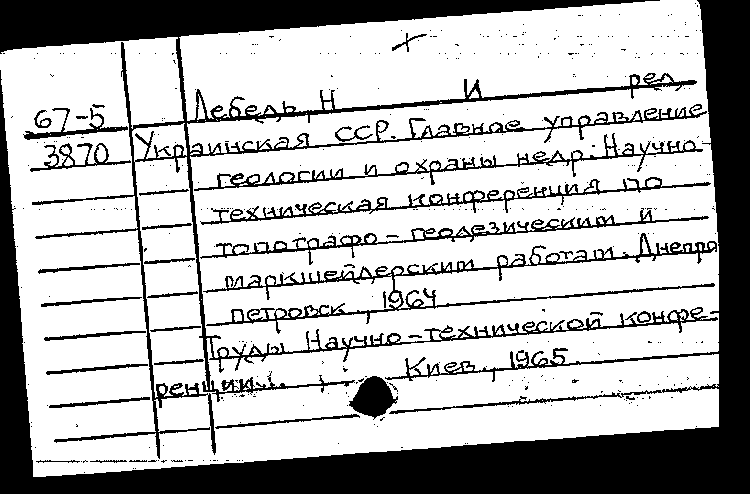 67-5 Лебедь, Н И ред.
3870 Украинская ССР. Главное управление
геологии и охраны недр. Научно-
техническая конференция по
топографо-геодезическим и
маркшейдерским работам. Днепро
петровск, 1964.
Труды Научно-технической конфе-
ренции... Киев, 1965.